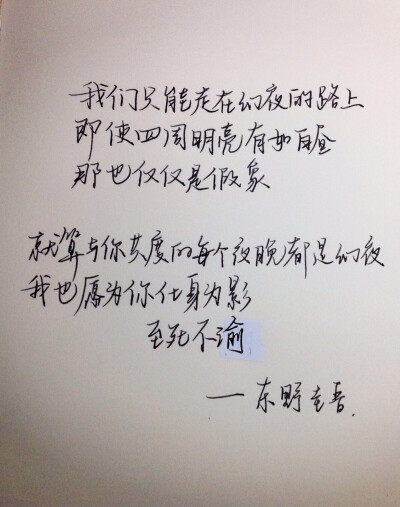 我们只能走在幻夜的路上
即使四周明亮有如白昼
那也仅仅是假象
就算与你共度的每个夜晚都是幻夜
我也愿为你化身为影
至死不渝
——东野圭吾.